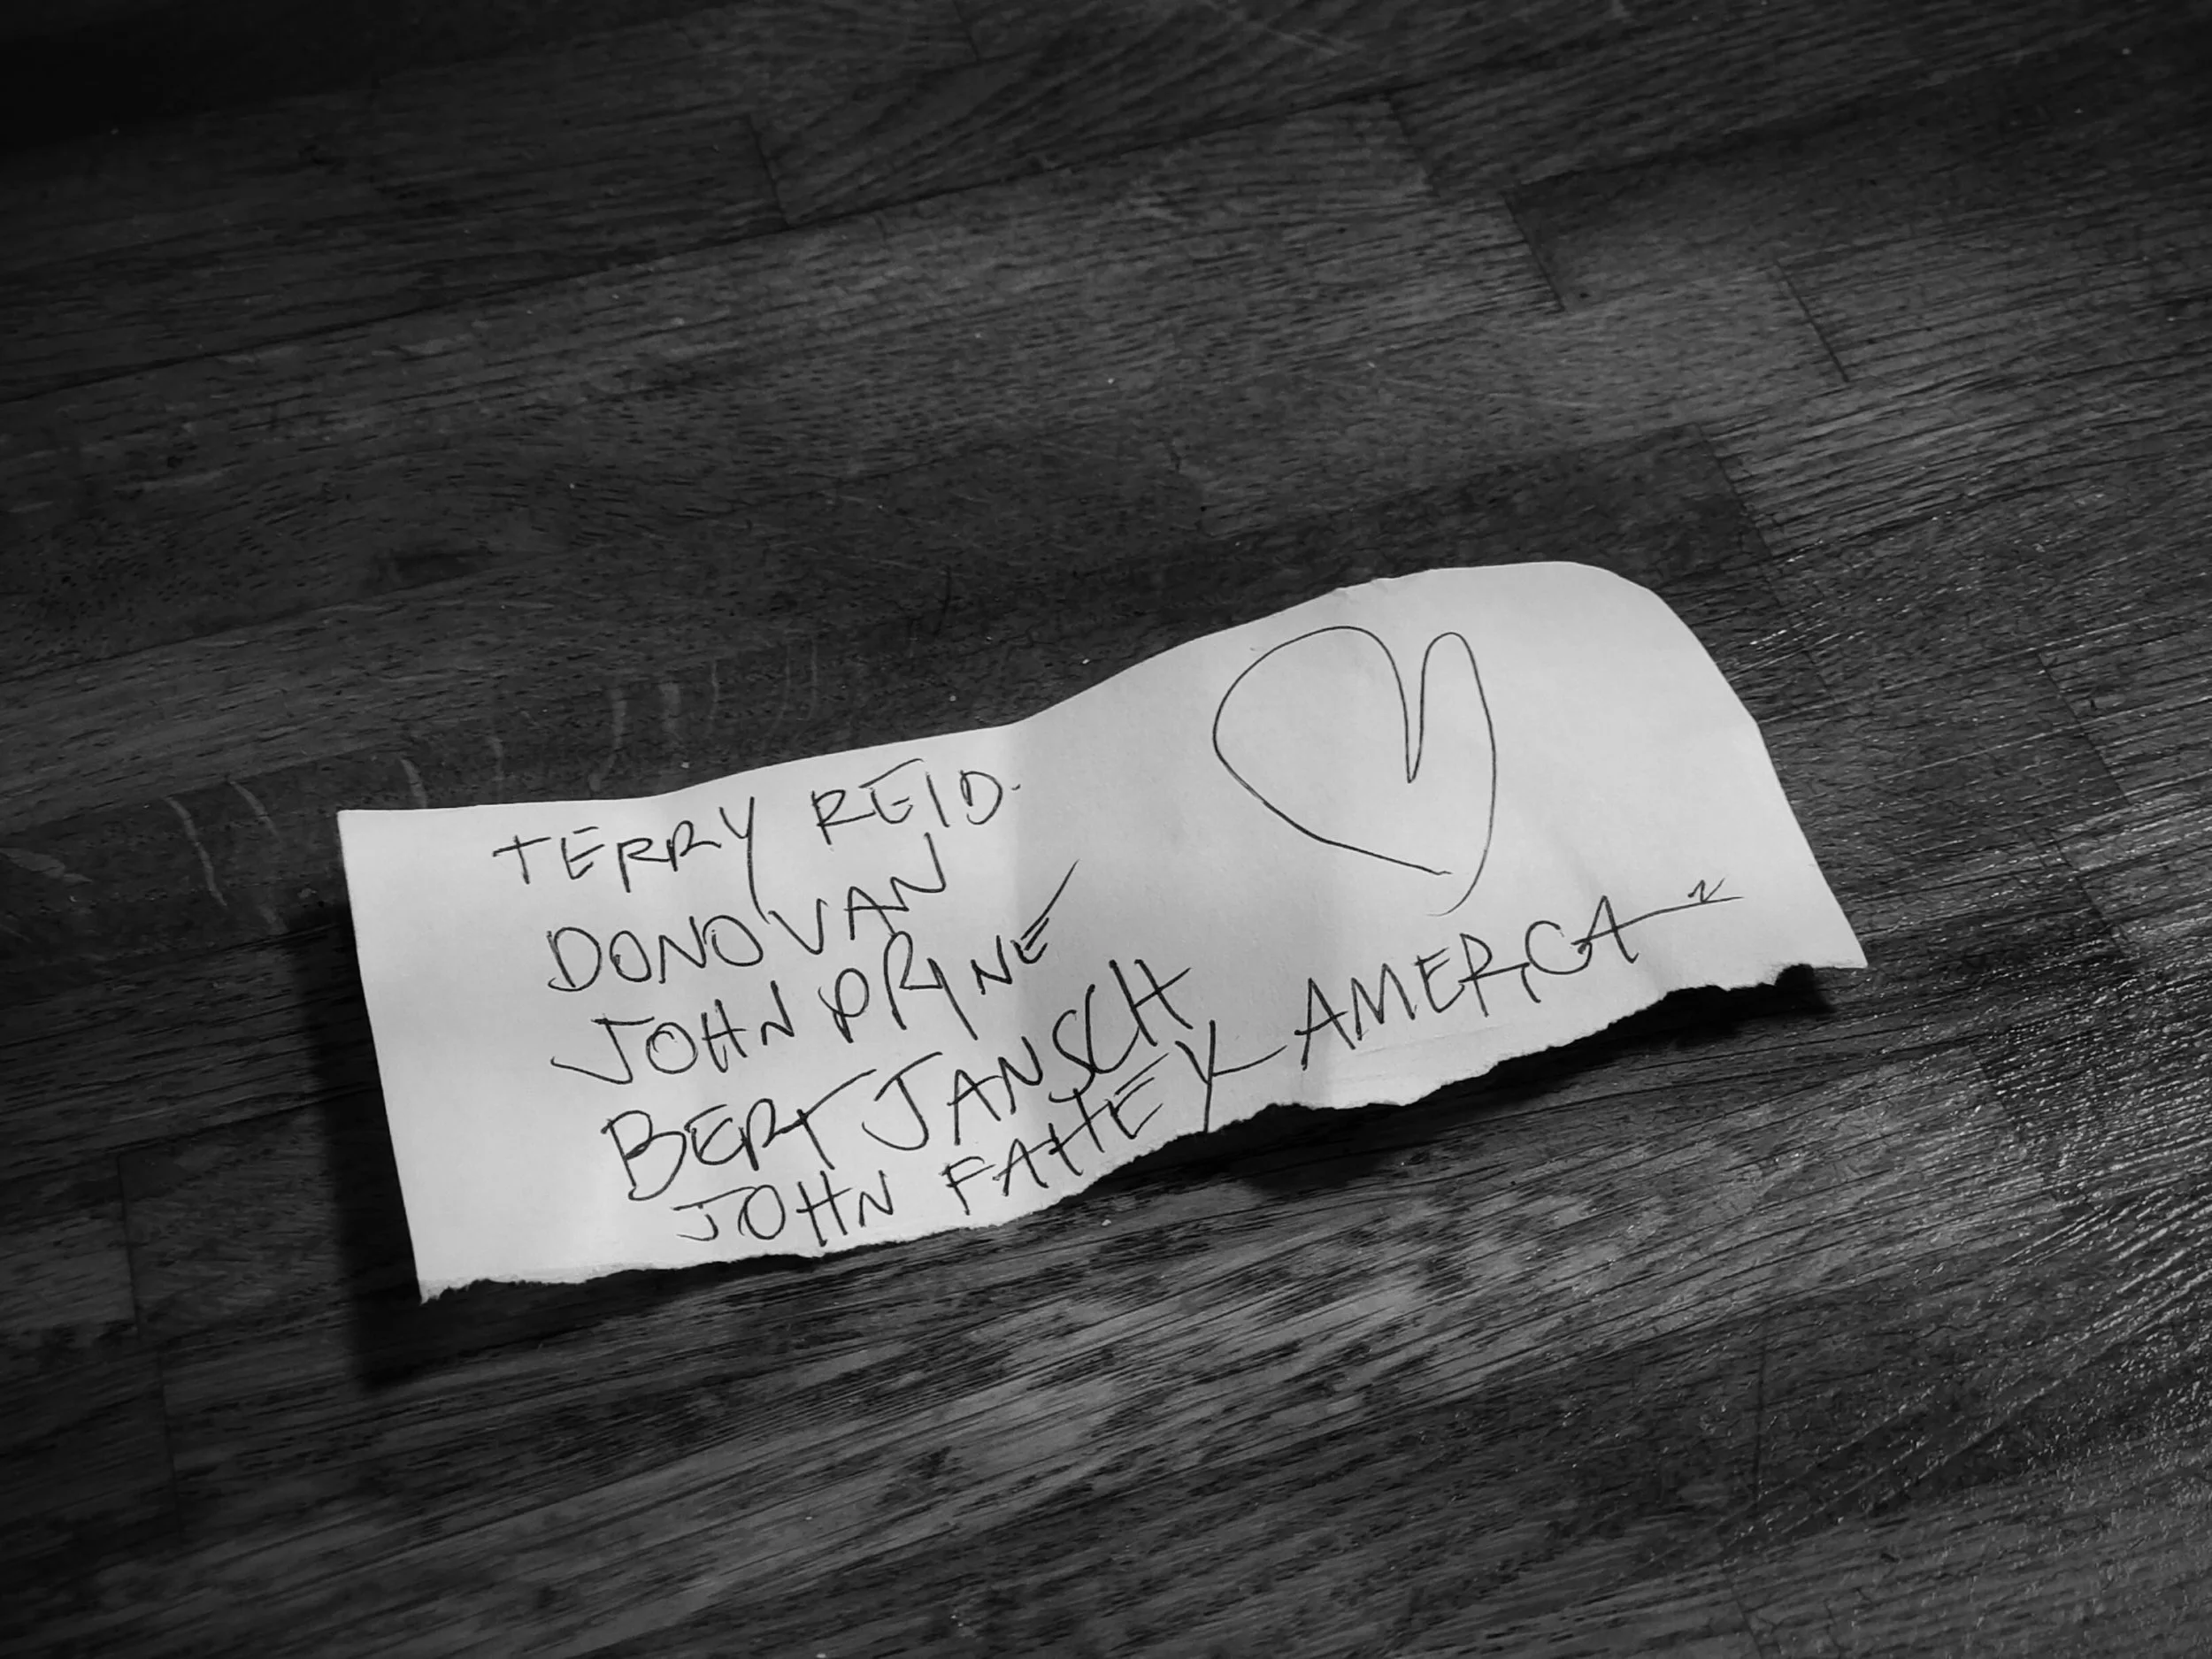 TERRY REID.
DONOVAN
JOHN PRINE
BERT JANSCH
JOHN FAHEY - AMERICA